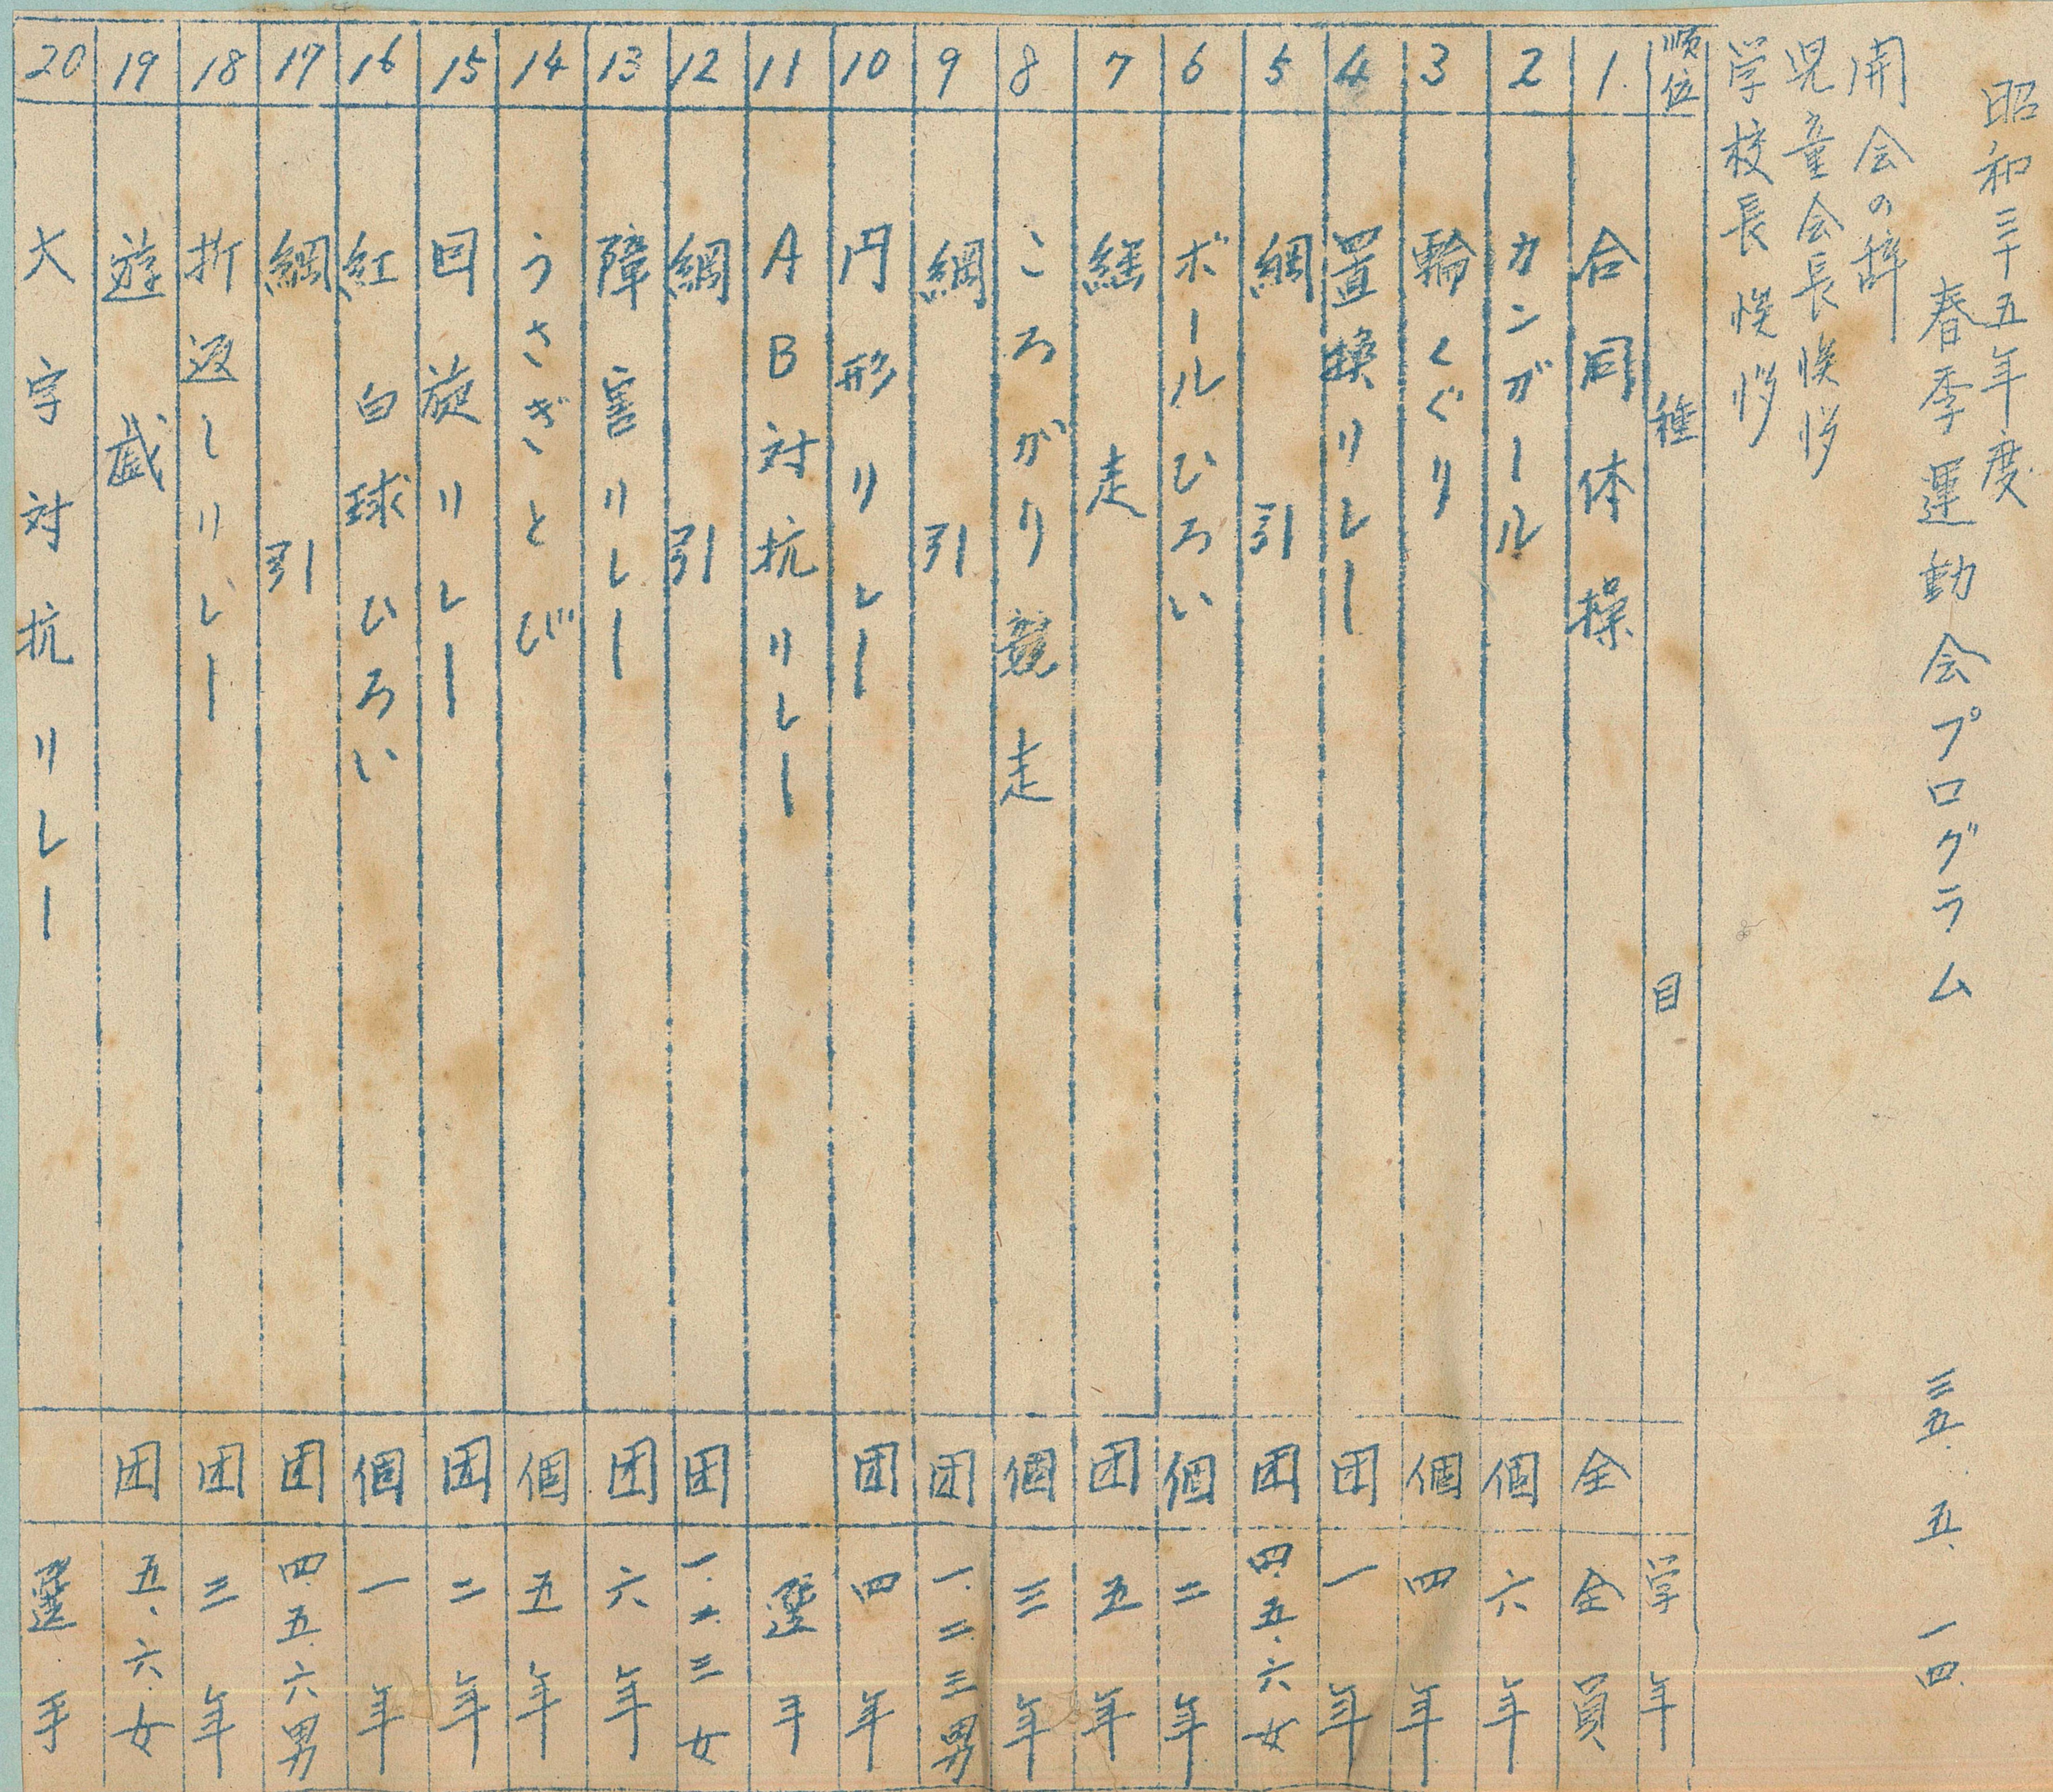 昭和三十五年度
春季運動会プログラム 三五.五.一四.
開会の辞
児童会長挨拶
学校長挨拶
順位 種目 学年
1. 合同体操 全 全員
2 カンガール 個 六年
3 輪くぐり 個 四年
4 置換リレー 団 一年
5 綱引 団 四.五.六女
6 ボールひろい 個 二年
7 継走 団 五年
8 ころがり競走 個 三年
9 綱引 団 一.二三男
10 円形リレー 団 四年
11 AB対抗リレー 選手
12 綱引 団 一.二.三女
13 障害リレー 団 六年
14 うさぎとび 個 五年
15 回旋リレー 団 二年
16 紅白球ひろい 個 一年
17 綱引 団 四.五.六男
18 折返しリレー 団 三年
19 遊戯 団 五.六.女
20 大字対抗リレー 選手